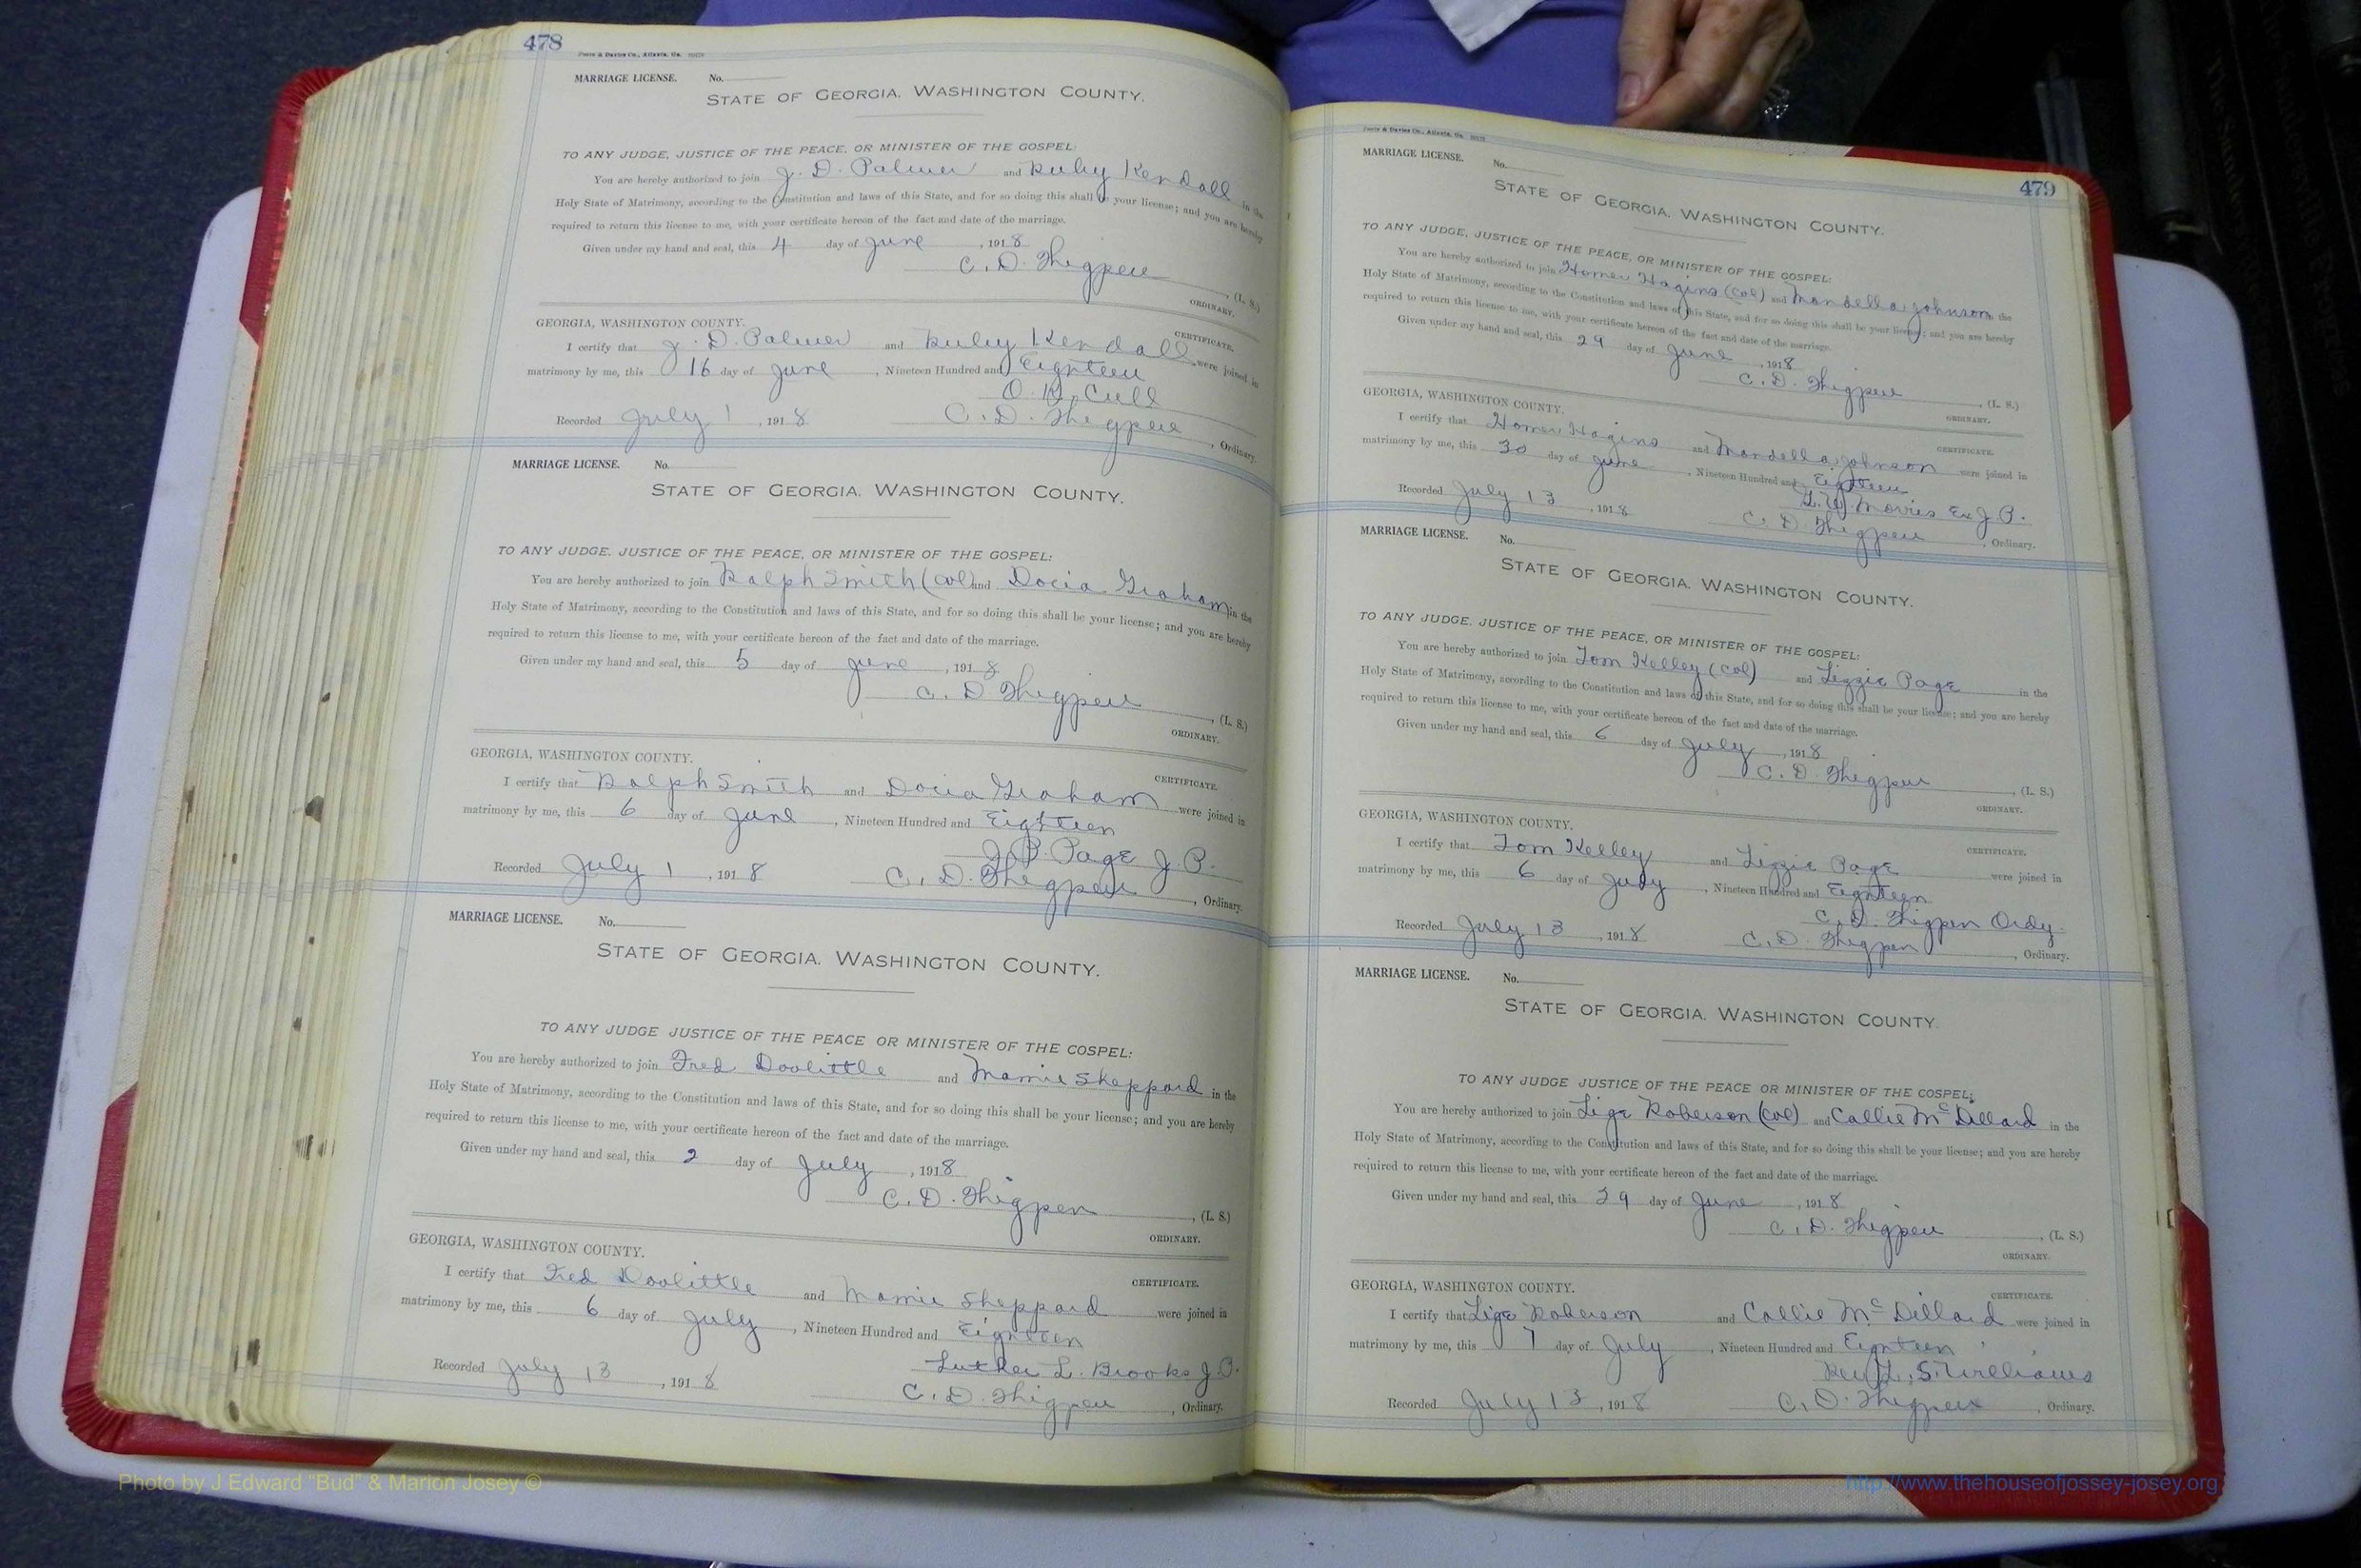 478
MARRIAGE LICENSE. No.
STATE OF GEORGIA. WASHINGTON COUNTY.
TO ANY JUDGE, JUSTICE OF THE PEACE, OR MINISTER OF THE GOSPEL:
You are hereby authorized to join J. D. Palmer and Ruby Kendall in the
Holy State of Matrimony, according to the Constitution and laws of this State, and for so doing this shall be your license; and you are hereby
required to return this license to me, with your certificate hereon of the fact and date of the marriage.
Given under my hand and seal, this 4 day of June, 1918
C. D. Thigpen, (L. S.)
ORDINARY.
GEORGIA, WASHINGTON COUNTY.
CERTIFICATE.
I certify that J. D. Palmer and Ruby Kendall were joined in
matrimony by me, this 16 day of June, Nineteen Hundred and Eighteen
Cull
Recorded July 1, 1918 C. D. Thigpen, Ordinary.
MARRIAGE LICENSE. No.
STATE OF GEORGIA. WASHINGTON COUNTY.
TO ANY JUDGE, JUSTICE OF THE PEACE, OR MINISTER OF THE GOSPEL:
You are hereby authorized to join Ralph Smith (Col) and Docia Graham in the
Holy State of Matrimony, according to the Constitution and laws of this State, and for so doing this shall be your license; and you are hereby
required to return this license to me, with your certificate hereon of the fact and date of the marriage.
Given under my hand and seal, this 5 day of June, 1918
C. D Thigpen, (L. S.)
ORDINARY.
GEORGIA, WASHINGTON COUNTY.
CERTIFICATE.
I certify that Ralph Smith and Docia Graham were joined in
matrimony by me, this 6 day of June, Nineteen Hundred and Eighteen
J. B. Page J. P.
Recorded July 1, 1918 C. D. Thigpen, Ordinary.
MARRIAGE LICENSE. No.
STATE OF GEORGIA. WASHINGTON COUNTY.
TO ANY JUDGE JUSTICE OF THE PEACE OR MINISTER OF THE GOSPEL:
You are hereby authorized to join Fred Doolittle and Mamie Sheppard in the
Holy State of Matrimony, according to the Constitution and laws of this State, and for so doing this shall be your license; and you are hereby
required to return this license to me, with your certificate hereon of the fact and date of the marriage.
Given under my hand and seal, this 2 day of July, 1918
C. D. Thigpen, (L. S.)
ORDINARY.
GEORGIA, WASHINGTON COUNTY.
CERTIFICATE.
I certify that Fred Doolittle and Mamie Sheppard were joined in
matrimony by me, this 6 day of July, Nineteen Hundred and Eighteen
Luther L. Brooks J. P.
Recorded July 13, 1918 C. D. Thigpen, Ordinary.
479
MARRIAGE LICENSE. No.
STATE OF GEORGIA. WASHINGTON COUNTY.
TO ANY JUDGE, JUSTICE OF THE PEACE, OR MINISTER OF THE GOSPEL:
You are hereby authorized to join Homer Hagins (Col) and Mandella Johnson in the
Holy State of Matrimony, according to the Constitution and laws of this State, and for so doing this shall be your license; and you are hereby
required to return this license to me, with your certificate hereon of the fact and date of the marriage.
Given under my hand and seal, this 29 day of June, 1918
C. D. Thigpen, (L. S.)
ORDINARY.
GEORGIA, WASHINGTON COUNTY.
CERTIFICATE.
I certify that Homer Hagins and Mandella Johnson were joined in
matrimony by me, this 30 day of June, Nineteen Hundred and Eighteen
Morris Ex J. P.
Recorded July 13, 1918 C. D. Thigpen, Ordinary.
MARRIAGE LICENSE. No.
STATE OF GEORGIA. WASHINGTON COUNTY.
TO ANY JUDGE, JUSTICE OF THE PEACE, OR MINISTER OF THE GOSPEL:
You are hereby authorized to join Tom Kelley (Col) and Lizzie Page in the
Holy State of Matrimony, according to the Constitution and laws of this State, and for so doing this shall be your license; and you are hereby
required to return this license to me, with your certificate hereon of the fact and date of the marriage.
Given under my hand and seal, this 6 day of July, 1918
C. D. Thigpen, (L. S.)
ORDINARY.
GEORGIA, WASHINGTON COUNTY.
CERTIFICATE.
I certify that Tom Kelley and Lizzie Page were joined in
matrimony by me, this 6 day of July, Nineteen Hundred and Eighteen
C. D. Thigpen Ordy.
Recorded July 13, 1918 C. D. Thigpen, Ordinary.
MARRIAGE LICENSE. No.
STATE OF GEORGIA. WASHINGTON COUNTY.
TO ANY JUDGE JUSTICE OF THE PEACE OR MINISTER OF THE GOSPEL:
You are hereby authorized to join Lige Roberson (Col) and Callie McDillard in the
Holy State of Matrimony, according to the Constitution and laws of this State, and for so doing this shall be your license; and you are hereby
required to return this license to me, with your certificate hereon of the fact and date of the marriage.
Given under my hand and seal, this 29 day of June, 1918
C. D. Thigpen, (L. S.)
ORDINARY.
GEORGIA, WASHINGTON COUNTY.
CERTIFICATE.
I certify that Lige Roberson and Callie McDillard were joined in
matrimony by me, this 7 day of July, Nineteen Hundred and Eighteen
Rev L. S. Williams
Recorded July 13, 1918 C. D. Thigpen, Ordinary.
Photo by J Edward "Bud" & Marion Josey ©
http://www.thehouseofjossey-josey.org